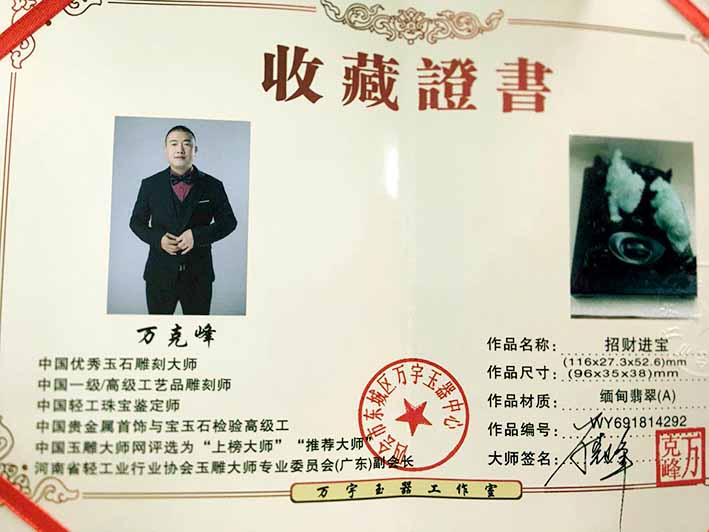 收藏證書
万克峰
中国优秀玉石雕刻大师
中国一级/高级工艺品雕刻师
中国轻工珠宝鉴定师
中国贵金属首饰与宝玉石检验高级工
中国玉雕大师网评选为“上榜大师”“推荐大师”
河南省轻工业行业协会玉雕大师专业委员会(广东)副会长
四会市东城区万宇玉器中心
作品名称: 招财进宝
(116x27.3x52.6)mm
作品尺寸: (96x35x38)mm
作品材质: 缅甸翡翠(A)
作品编号: WY691814292
大师签名:
万克峰
万宇玉器工作室